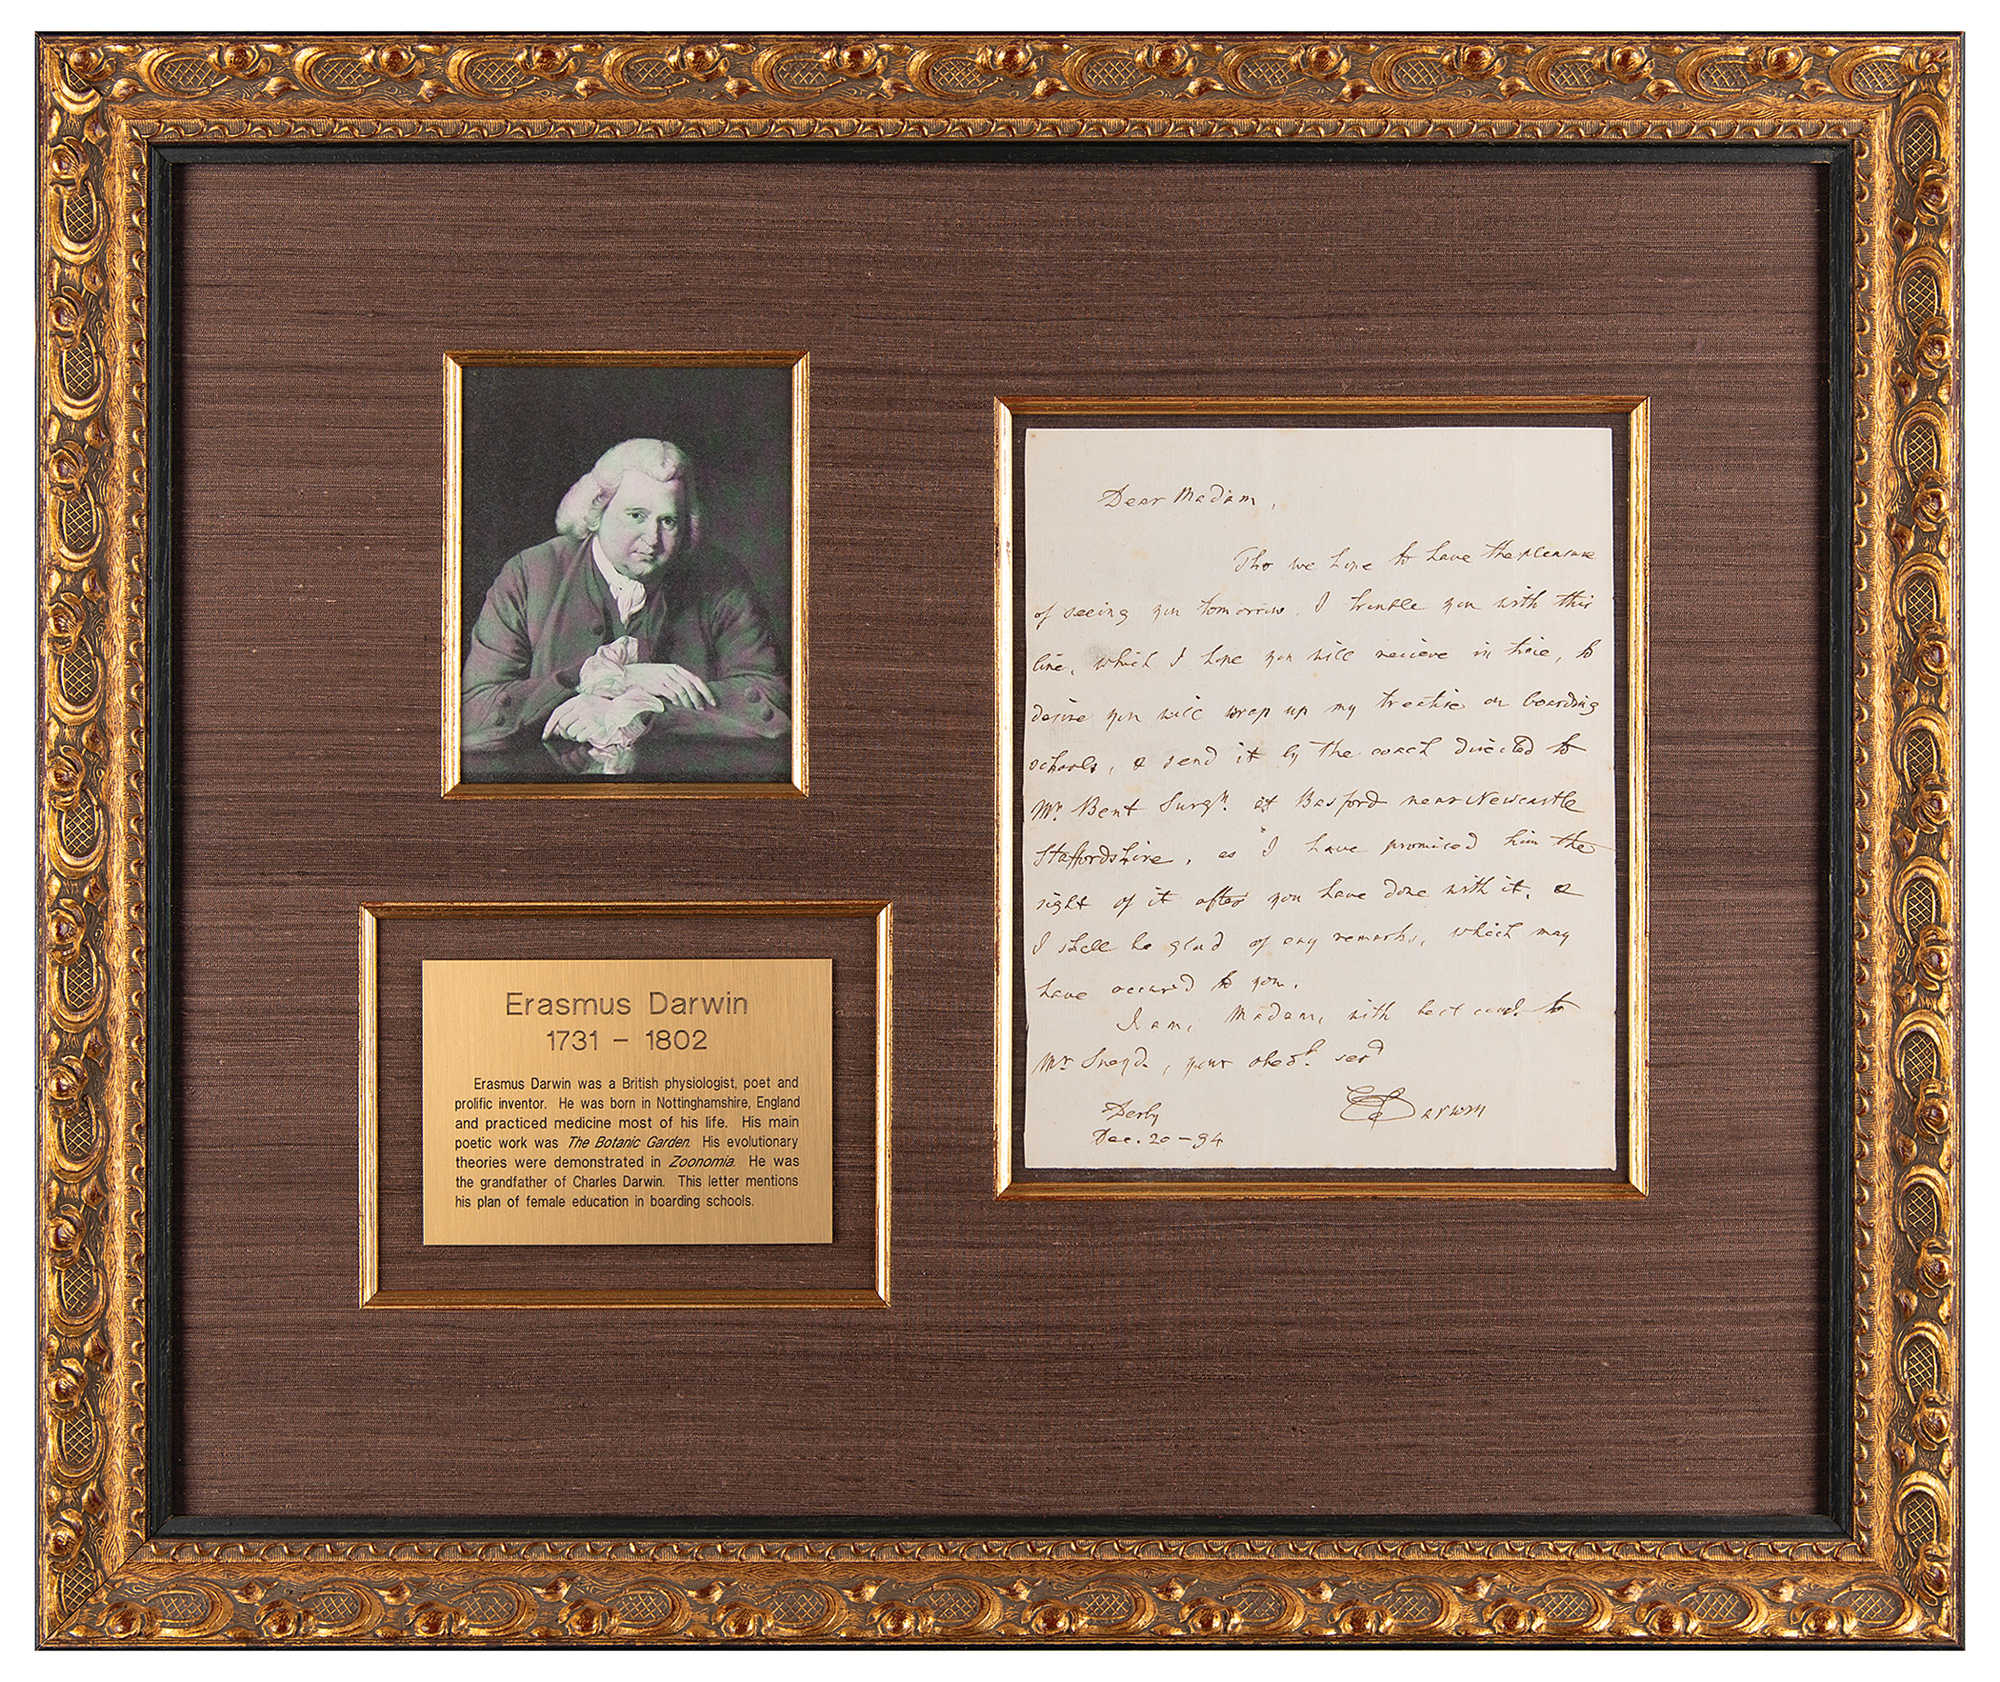 Erasmus Darwin
1731 – 1802
Erasmus Darwin was a British physiologist, poet and
prolific inventor. He was born in Nottinghamshire, England
and practiced medicine most of his life. His main
poetic work was The Botanic Garden. His evolutionary
theories were demonstrated in Zoonomia. He was
the grandfather of Charles Darwin. This letter mentions
his plan of female education in boarding schools.
Dear Madam,
Tho we hope to have the pleasure
of seeing you tomorrow, I trouble you with this
line, which I hope you will recieve in time, to
desire you will wrap up my treatise on boarding
schools, & send it by the coach directed to
Mr. Bent Surgn. at Basford near Newcastle
Staffordshire, as I have promised him the
sight of it after you have done with it, &
I shall be glad of any remarks, which may
have occured to you.
I am, Madam, with best to
Mr Sneyd, your obedt. serv
Derby
E Darwin
Dec. 20 – 94